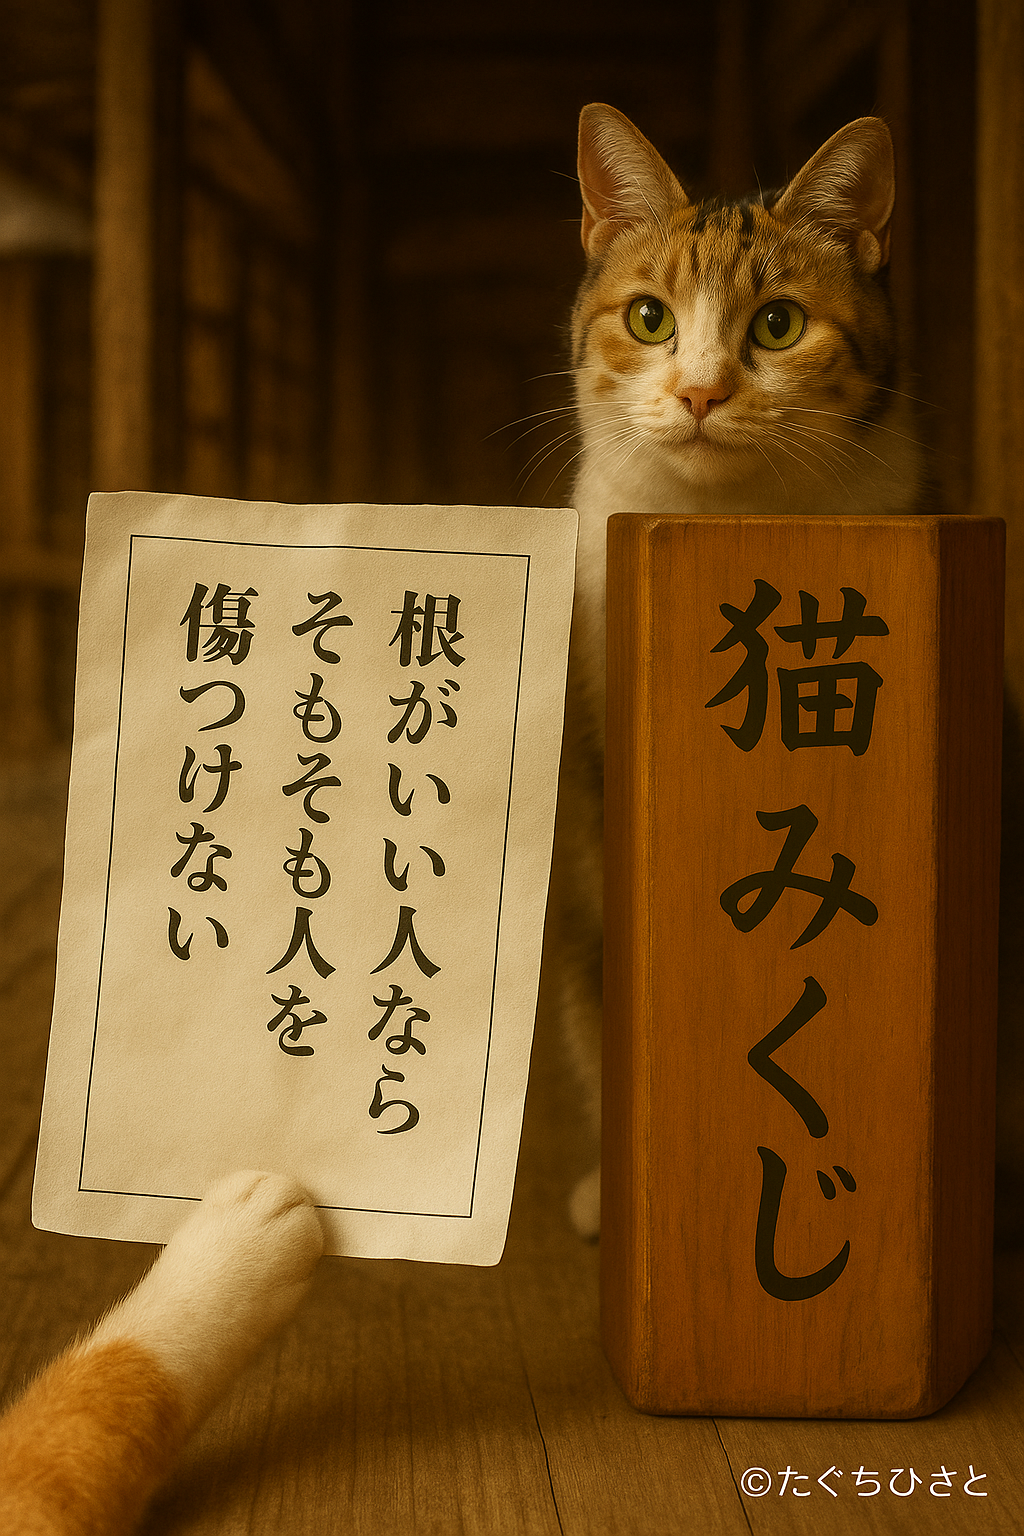 根がいい人なら
そもそも人を
傷つけない
猫みくじ
©たぐちひさと